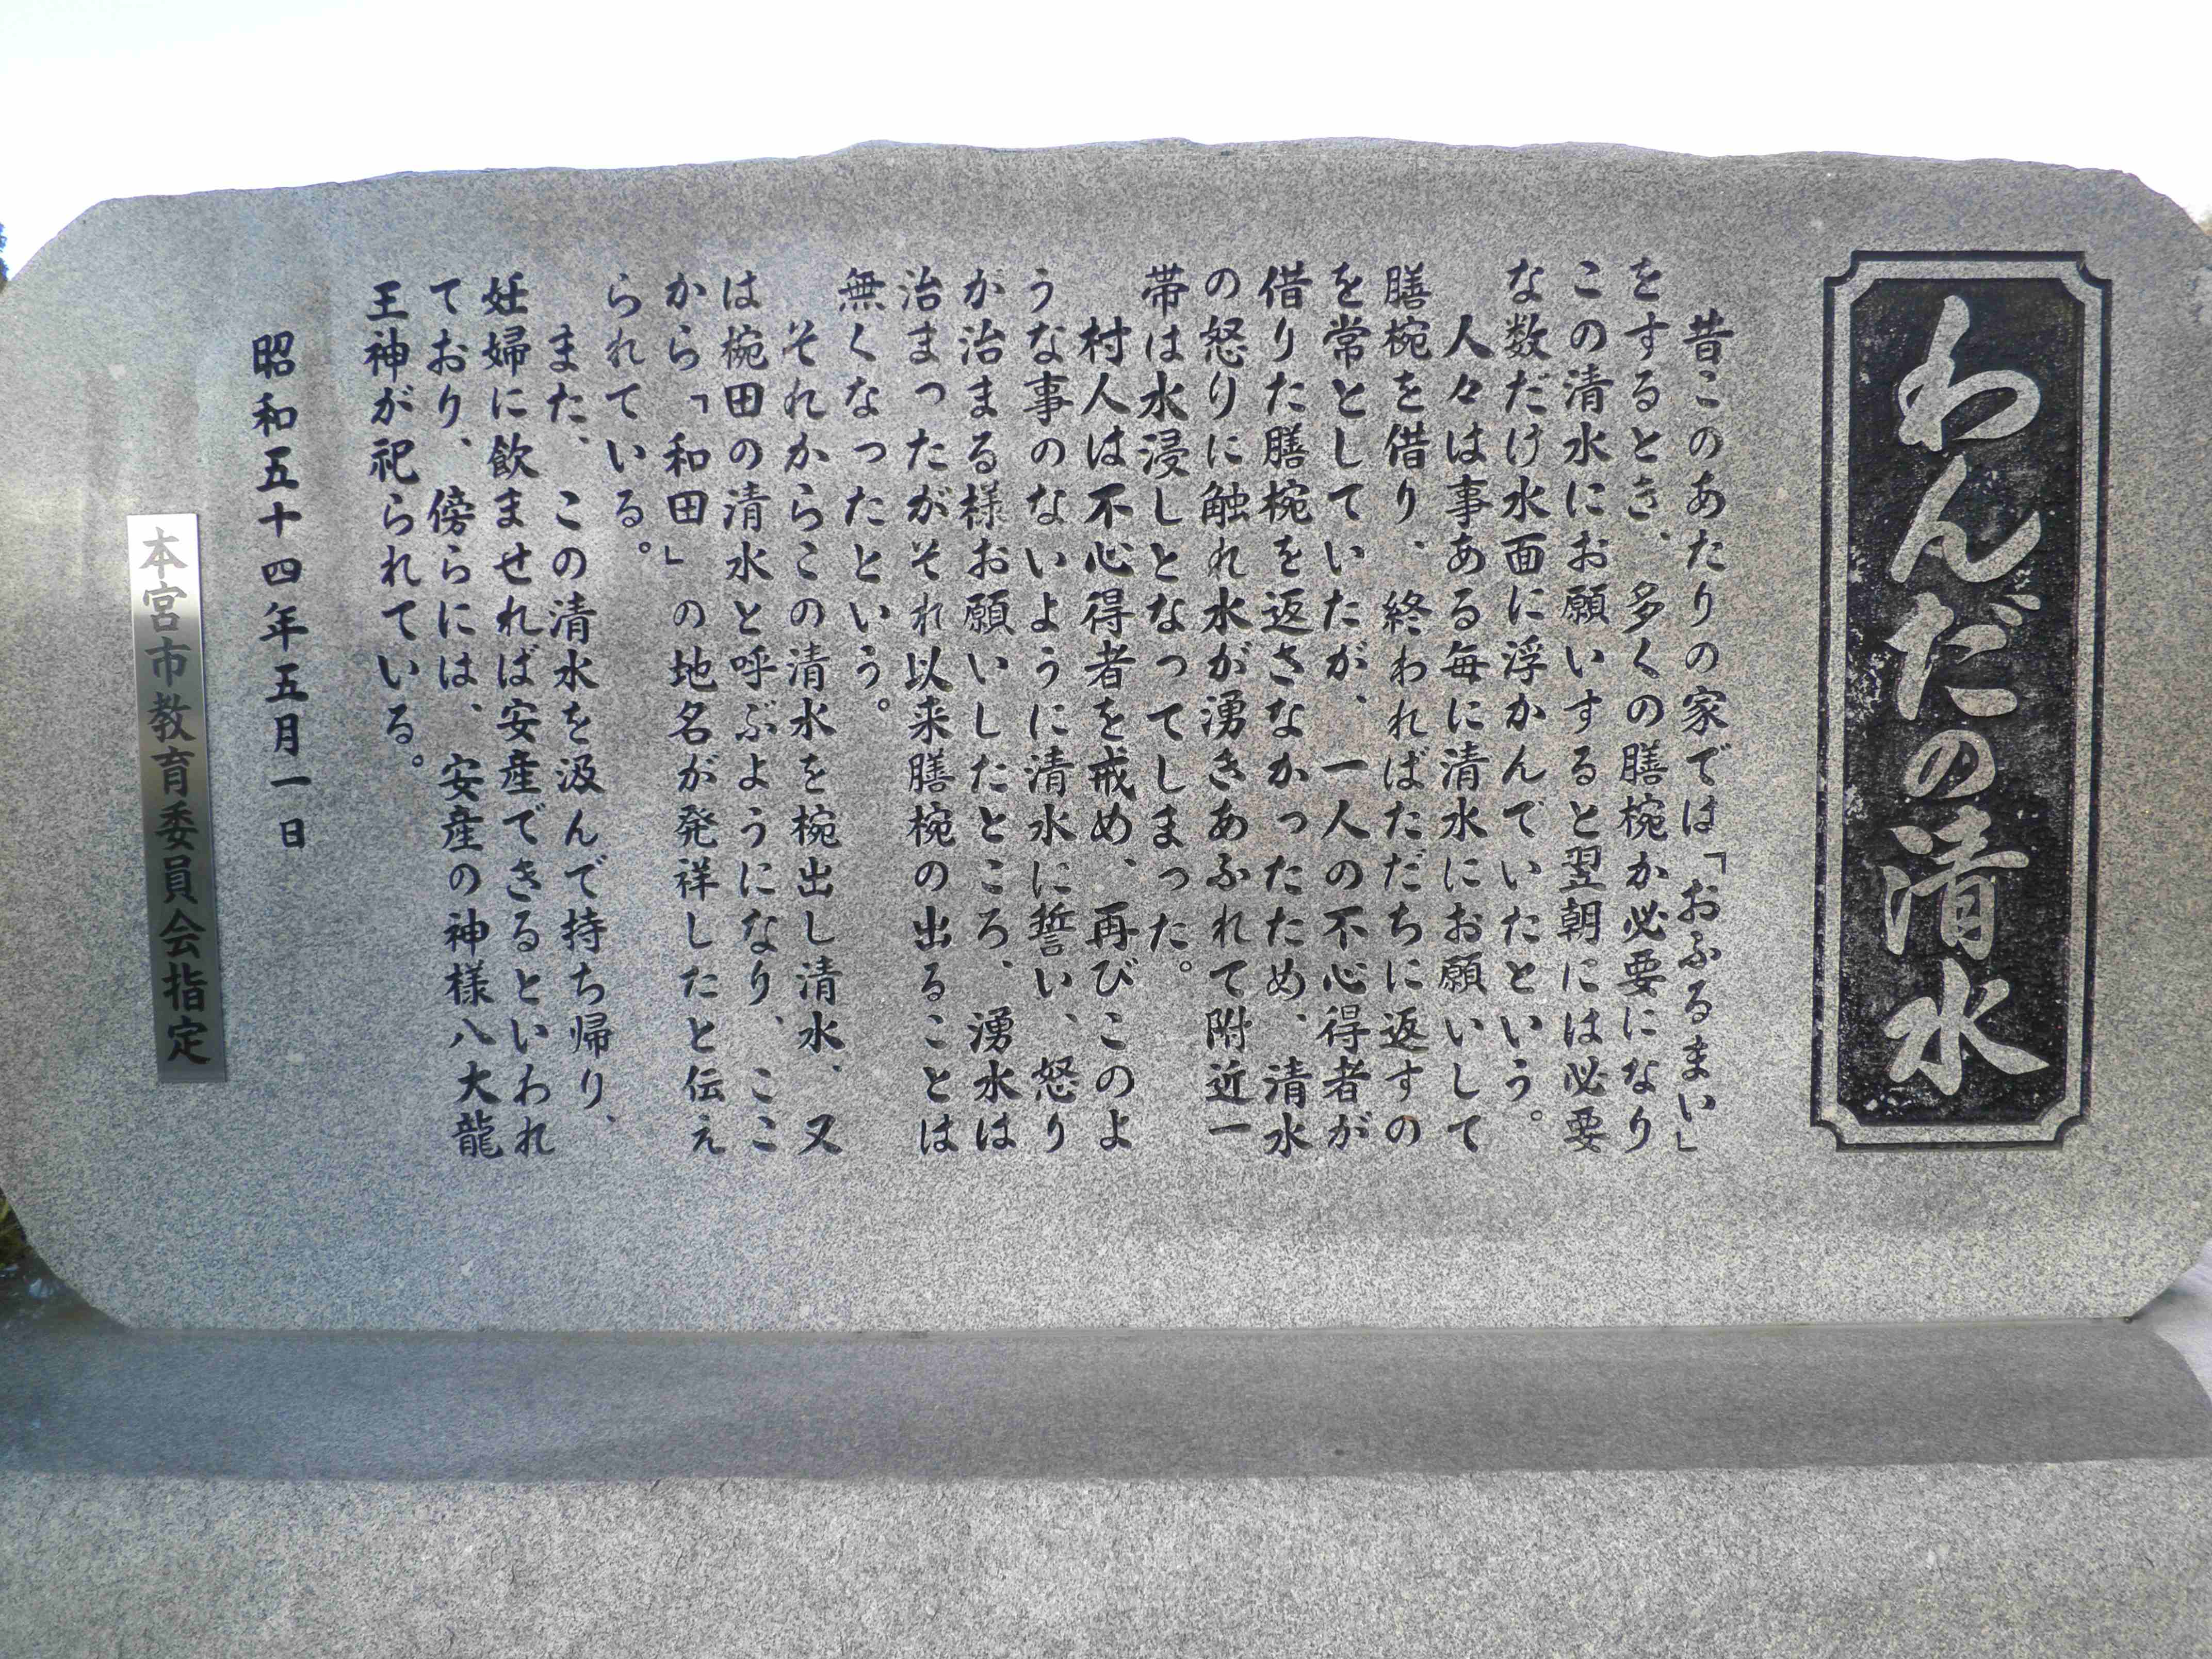 わんだの清水
昔このあたりの家では「おふるまい」
をするとき、多くの膳椀か必要になり
この清水にお願いすると翌朝には必要
な数だけ水面に浮かんでいたという。
人々は事ある毎に清水にお願いして
膳椀を借り、終わればただちに返すの
を常としていたが、一人の不心得者が
借りた膳椀を返さなかったため、清水
の怒りに触れ水が湧きあふれて附近一
帯は水浸しとなってしまった。
村人は不心得者を戒め、再びこのよ
うな事のないように清水に誓い、怒り
が治まる様お願いしたところ、湧水は
治まったがそれ以来膳椀の出ることは
無くなったという。
それからこの清水を椀出し清水、又
は椀田の清水と呼ぶようになり、ここ
から「和田」の地名が発祥したと伝え
られている。
また、この清水を汲んで持ち帰り、
妊婦に飲ませれば安産できるといわれ
ており、傍らには、安産の神様八大龍
王神が祀られている。
昭和五十四年五月一日
本宮市教育委員会指定